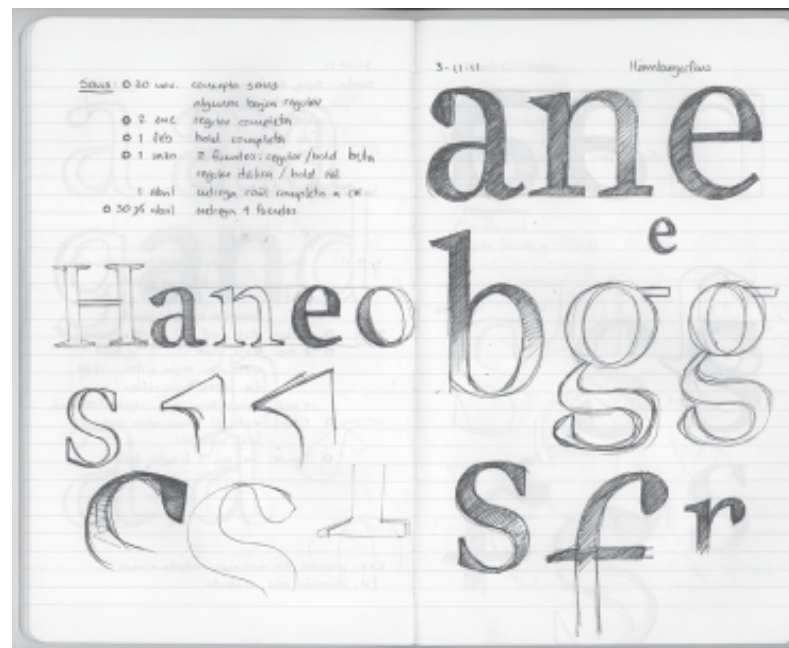 Sans: 20 nov. concepto sans
algunas bajas regular
2 ene regular completa
1 feb bold completa
1 2 fuentes: regular / bold beta
regular itálica / bold
1 abril entrega completa a
30 abril entrega 4 fuentes
Haneo
s
c s
3-11-11
ane
e
b g g
s f r